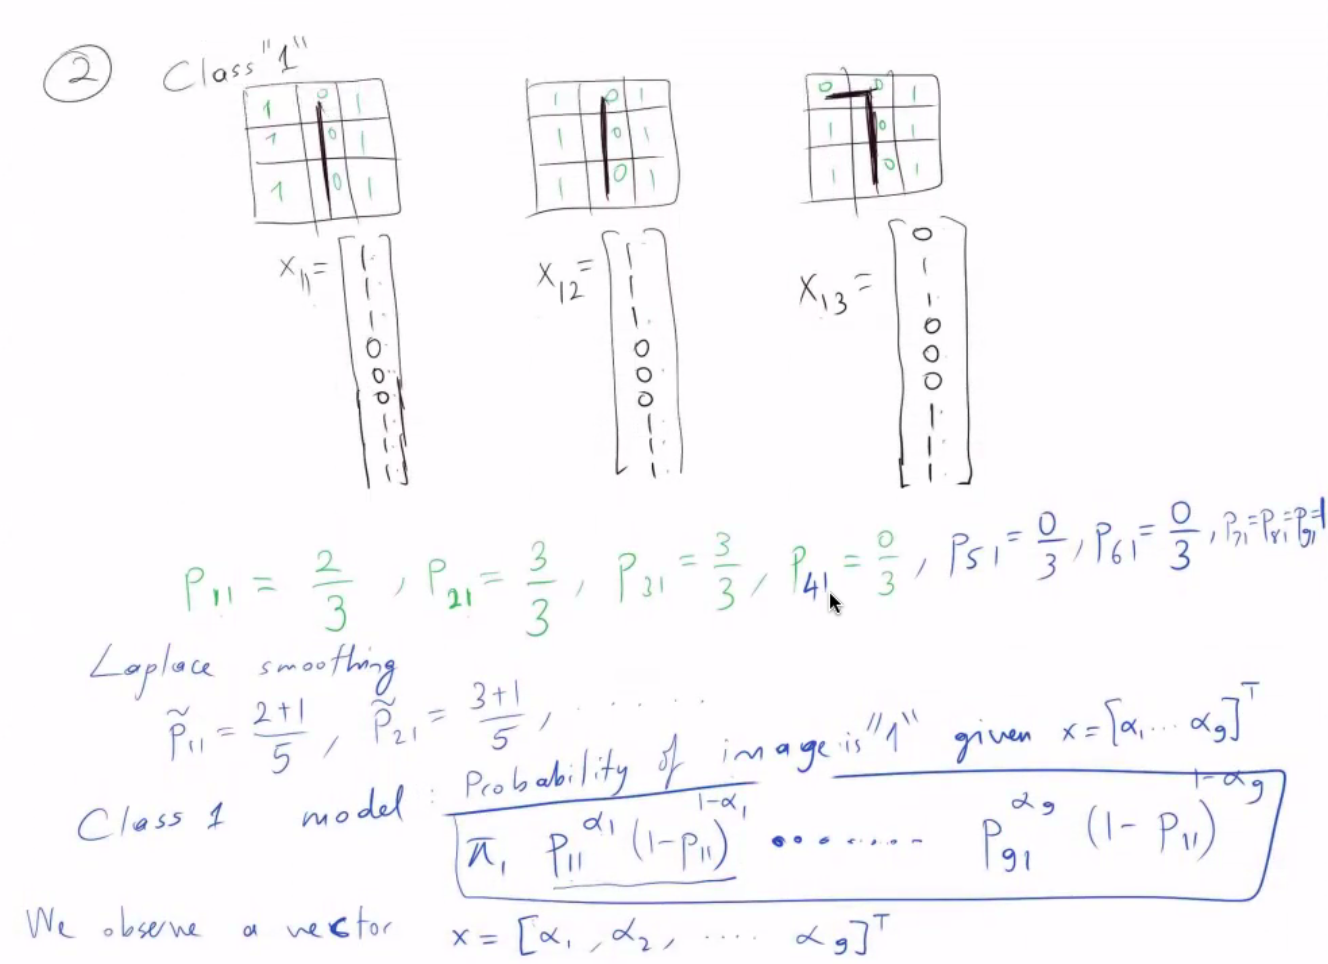 ② Class "1"
1 0 1   1 0 1   0 0 1
1 0 1   1 0 1   1 0 1
1 0 1   1 0 1   1 0 1
x₁₁ = [1 1 1 0 0 0 1 1 1]   x₁₂ = [1 1 1 0 0 0 1 1 1]   x₁₃ = [0 1 1 0 0 0 1 1 1]
P₁₁ = 2/3 , P₂₁ = 3/3 , P₃₁ = 3/3 , P₄₁ = 0/3 , P₅₁ = 0/3 , P₆₁ = 0/3 , P₇₁ = P₈₁ = P₉₁ = 1
Laplace smoothing
P̃₁₁ = (2+1)/5 , P̃₂₁ = (3+1)/5 , . . . . . .
Class 1 model : Probability of image is "1" given x = [α₁ ... α₉]ᵀ
π₁ P₁₁^α₁ (1-P₁₁)^(1-α₁) ......... P₉₁^α₉ (1-P₁₁)^(1-α₉)
We observe a vector x = [α₁ , α₂ , .... α₉]ᵀ